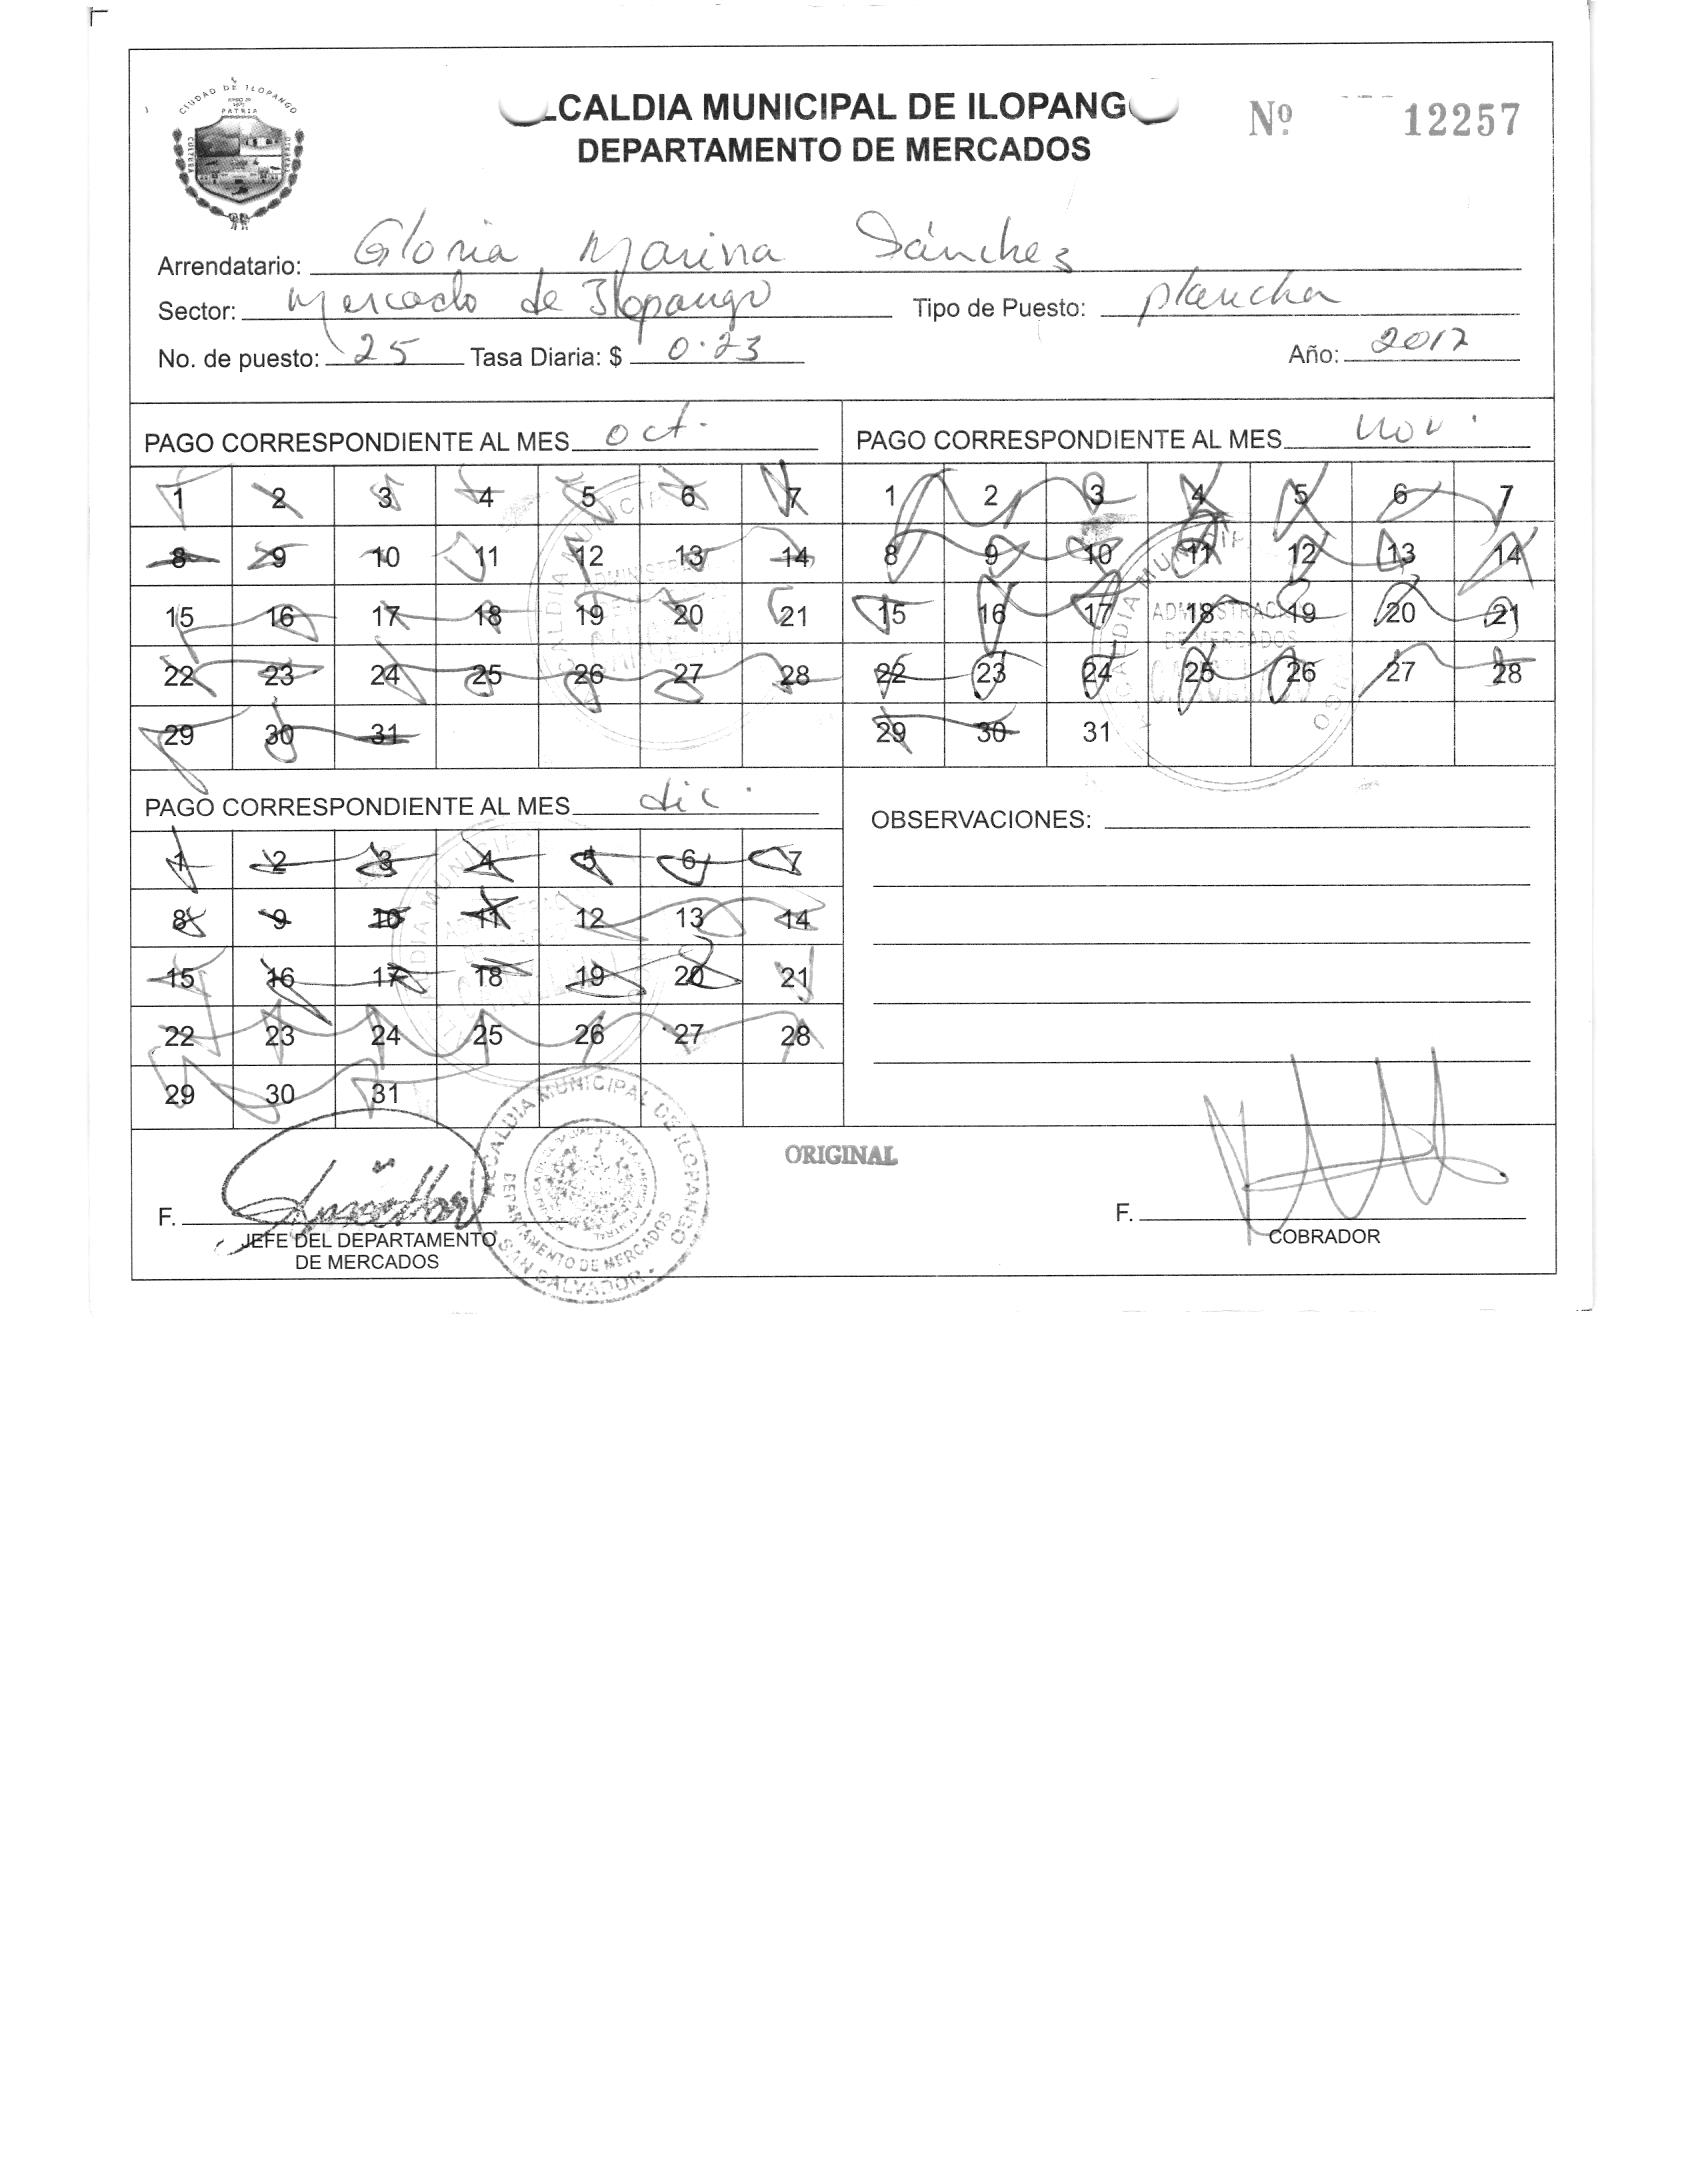 CIUDAD DE ILOPANGO
PATRIA
CULTURA
LCALDIA MUNICIPAL DE ILOPANG
DEPARTAMENTO DE MERCADOS
Nº 12257
Arrendatario: Gloria Marina Sánchez
Sector: Mercado de Ilopango Tipo de Puesto: plancha
No. de puesto: 25 Tasa Diaria: $ 0.23 Año: 2017
PAGO CORRESPONDIENTE AL MES oct.
1 2 3 4 5 6 7
8 9 10 11 12 13 14
15 16 17 18 19 20 21
22 23 24 25 26 27 28
29 30 31
PAGO CORRESPONDIENTE AL MES nov.
1 2 3 4 5 6 7
8 9 10 11 12 13 14
15 16 17 18 19 20 21
22 23 24 25 26 27 28
29 30 31
ADMINISTRACIO
DE MERCADOS
PAGO CORRESPONDIENTE AL MES dic.
1 2 3 4 5 6 7
8 9 10 11 12 13 14
15 16 17 18 19 20 21
22 23 24 25 26 27 28
29 30 31
OBSERVACIONES:
ORIGINAL
F.
JEFE DEL DEPARTAMENTO
DE MERCADOS
ALCALDIA MUNICIPAL DE ILOPANGO
DEPARTAMENTO DE MERCADOS
SAN SALVADOR
F.
COBRADOR